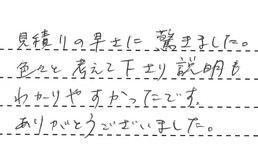 見積りの早さに驚きました。
色々と考えて下さり説明も
わかりやすかったです。
ありがとうございました。